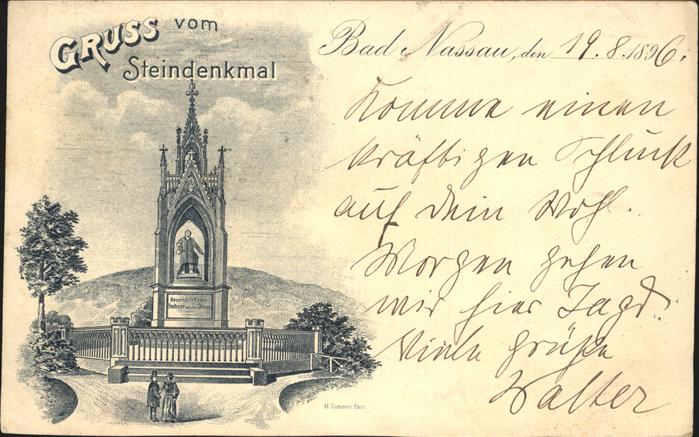 GRUSS vom
Steindenkmal
Bad Nassau, den 19.8.1896.
Komme einen
kräftigen Schluck
auf Dein Wohl.
Morgen gehen
wir hier Jagd.
Viele Grüße
Walter
Heinrich Fr. Karl
Freiherr vom Stein